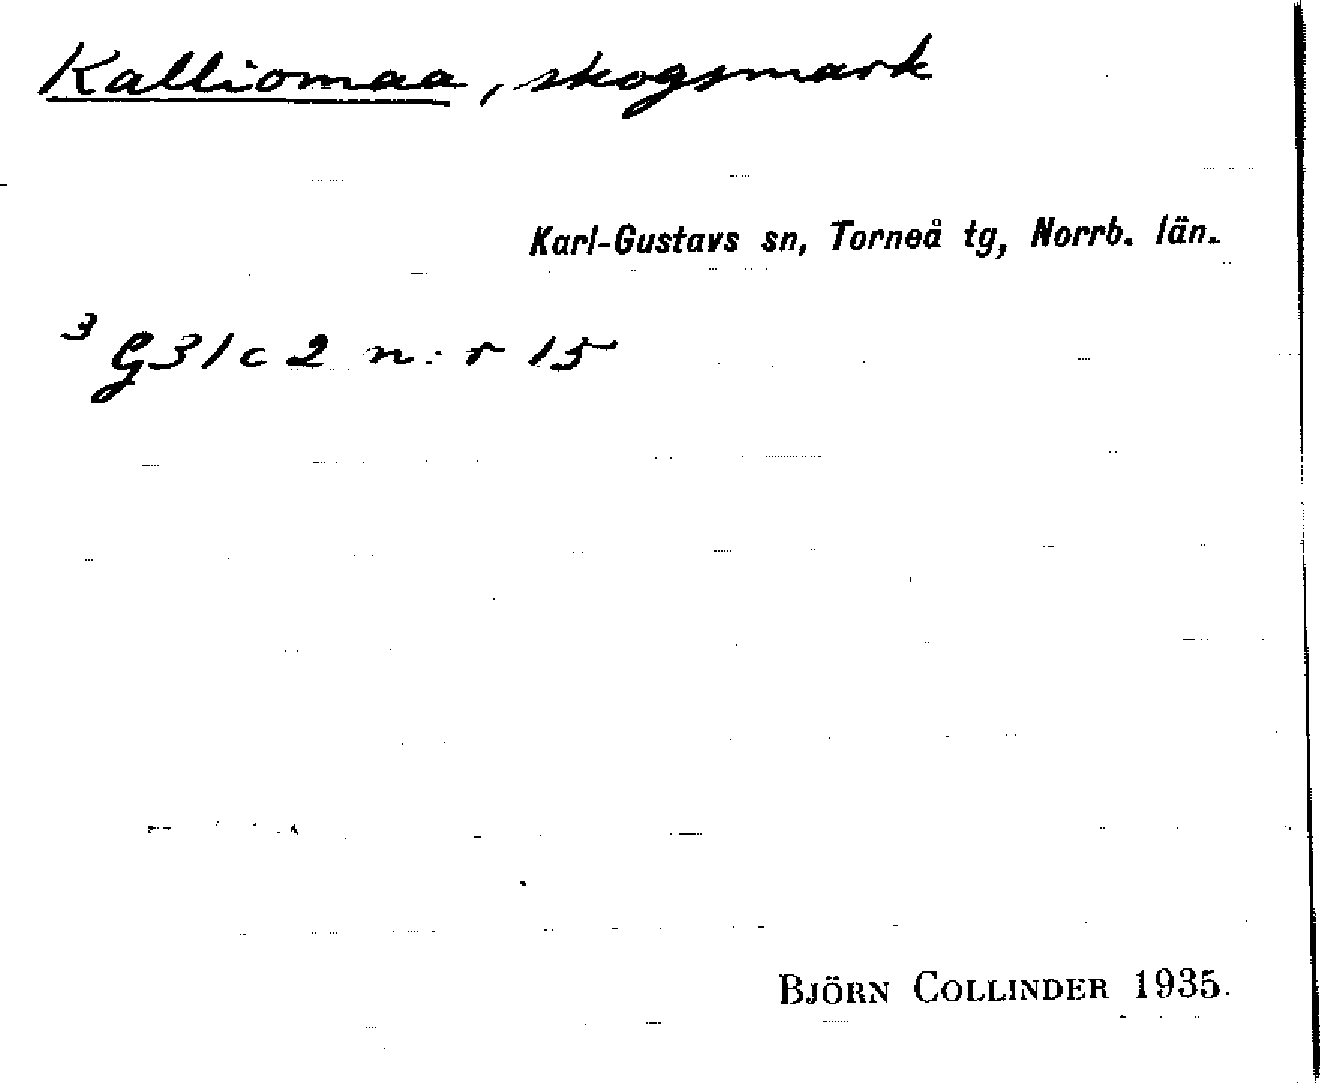 Kalliomaa, skogsmark
Karl-Gustavs sn, Torneå tg, Norrb. län.
³ G31c2 n:r 15
BJÖRN COLLINDER 1935.